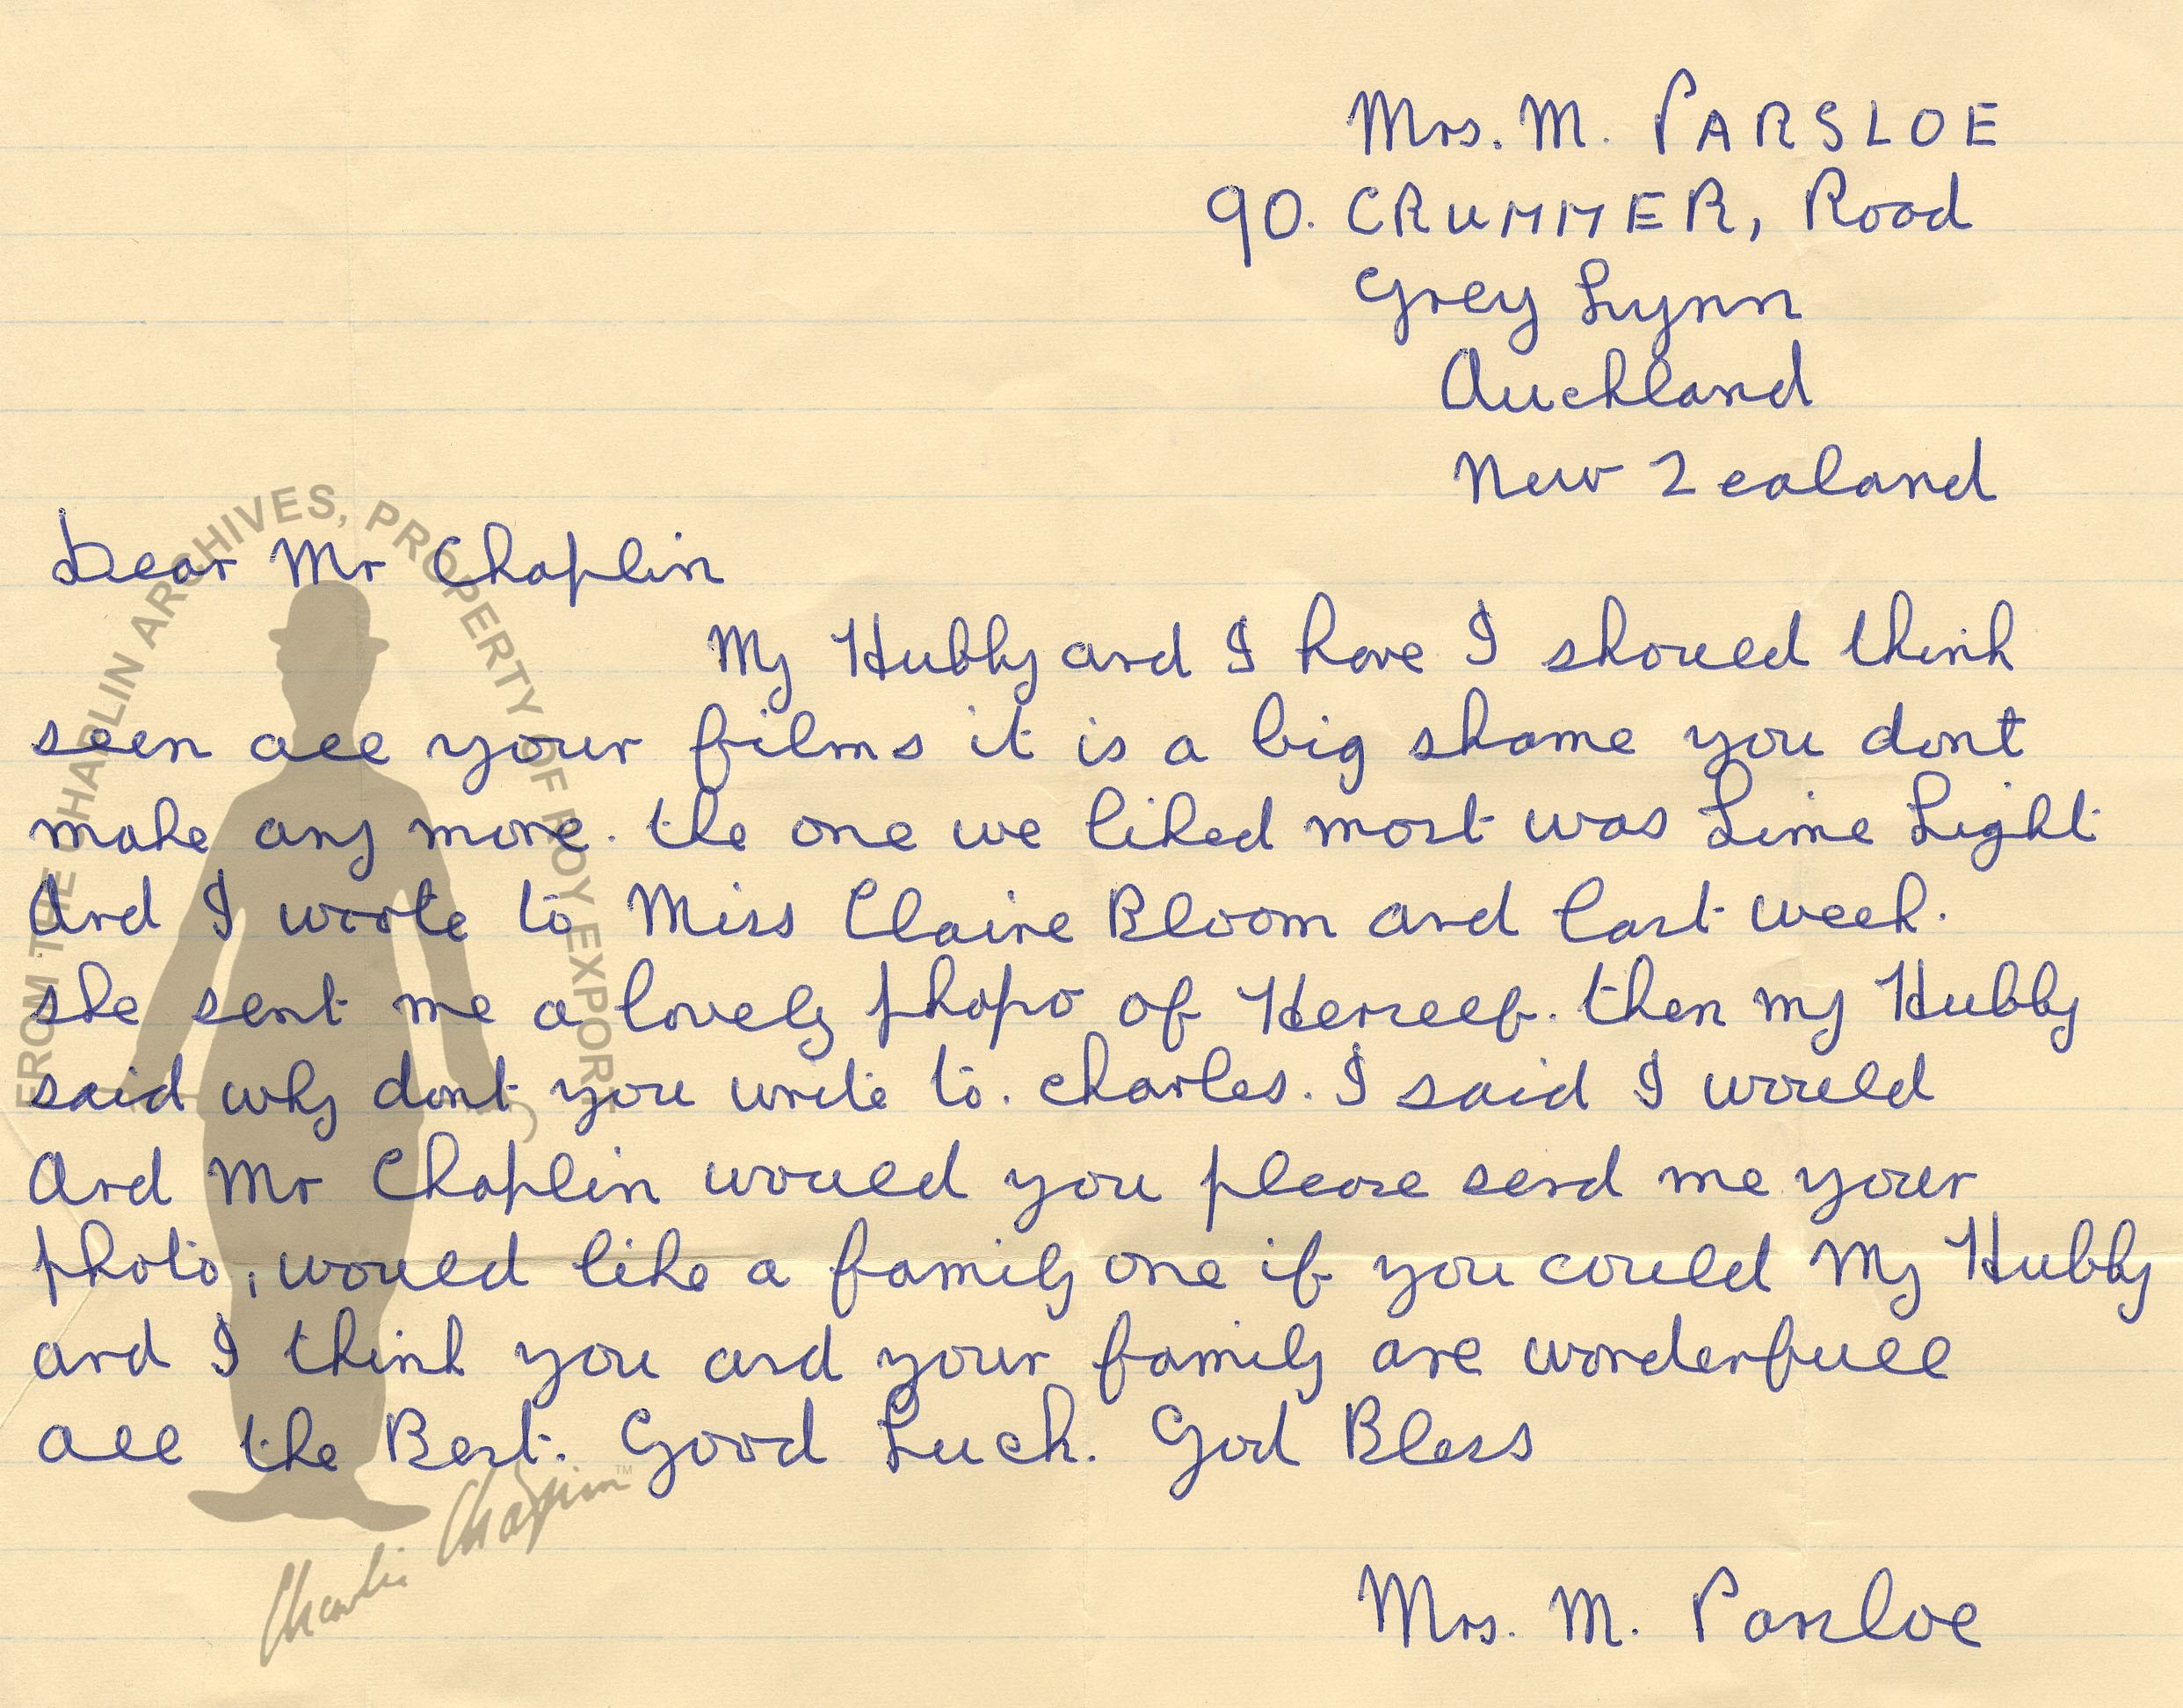 Mrs. M. PARSLOE
90. CRUMMER, Road
Grey Lynn
Auckland
New Zealand
Dear Mr Chaplin
My Hubby and I have I should think
seen all your films it is a big shame you dont
make any more. the one we liked most was Lime Light
And I wrote to Miss Claire Bloom and last week.
she sent me a lovely phopo of Herself. then my Hubby
said why dont you write to. charles. I said I would
And Mr Chaplin would you please send me your
photo, would like a family one if you could My Hubby
and I think you and your family are wonderfull
all the Best. Good Luck. God Bless
Mrs. M. Parsloe
FROM THE CHAPLIN ARCHIVES, PROPERTY OF ROY EXPORT
Charlie Chaplin™